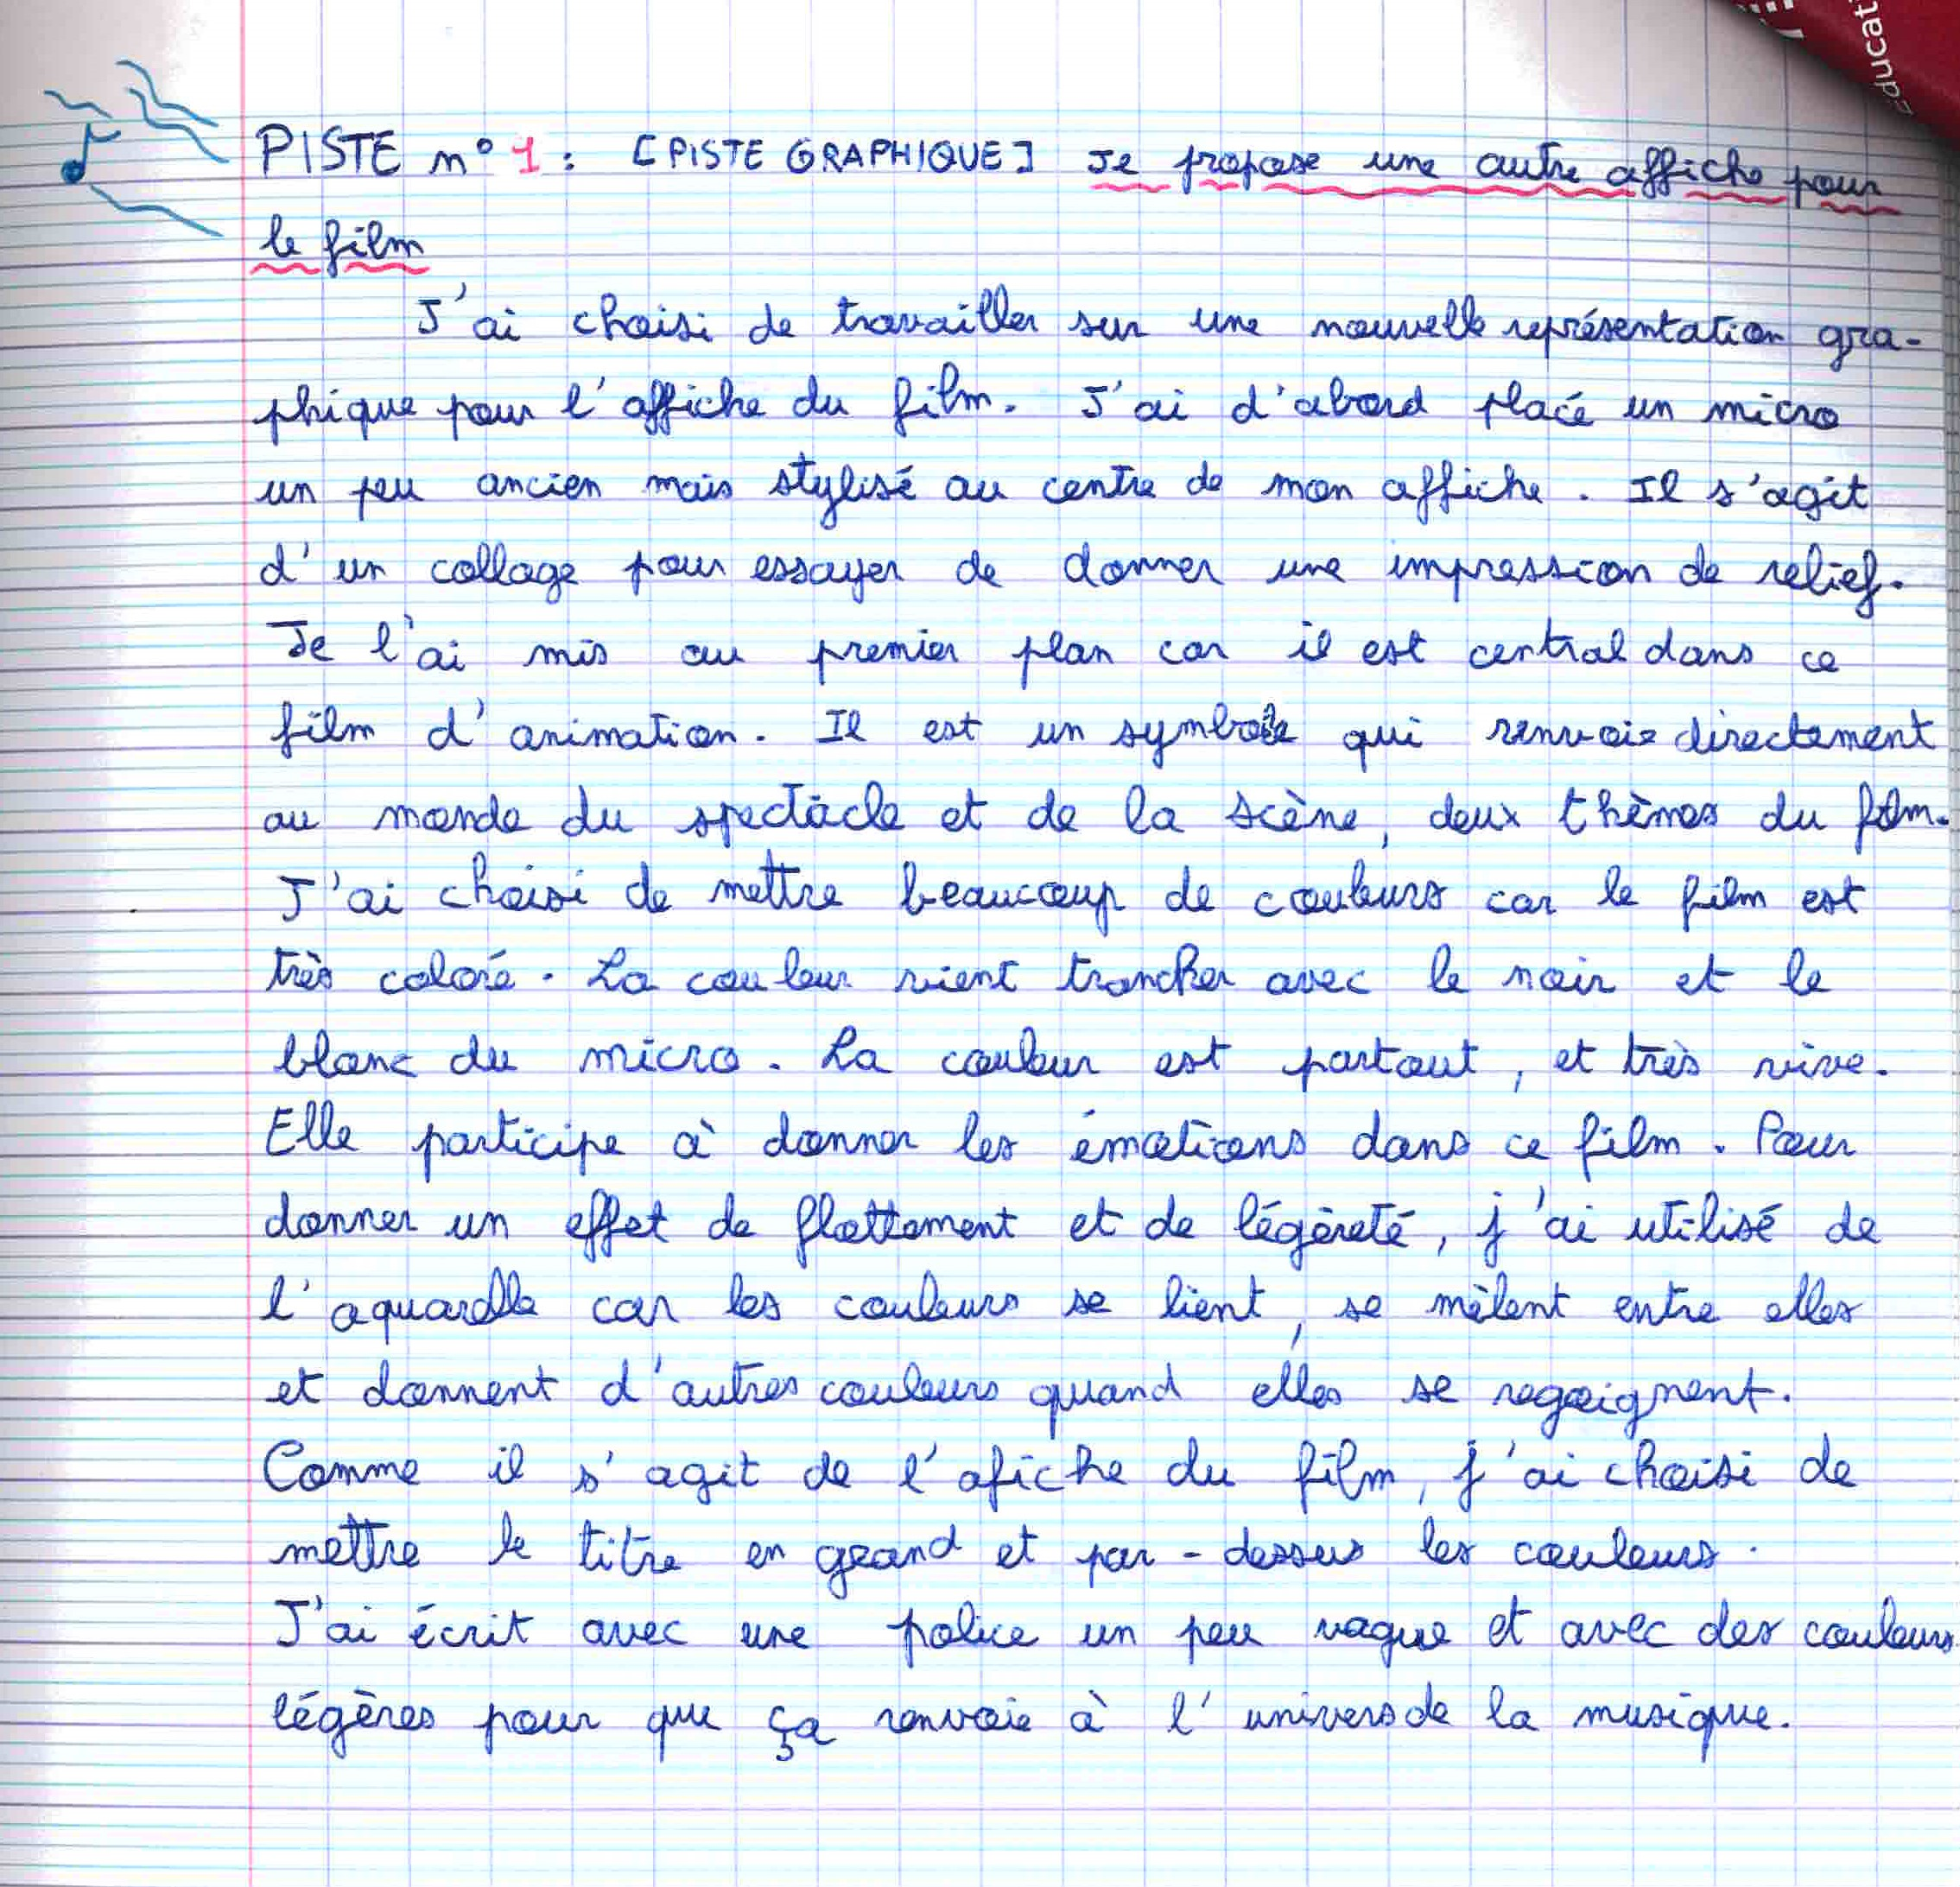 Éducat
PISTE n° 1 : [PISTE GRAPHIQUE] Je propose une autre affiche pour
le film
J'ai choisi de travailler sur une nouvelle représentation gra-
phique pour l'affiche du film. J'ai d'abord placé un micro
un peu ancien mais stylisé au centre de mon affiche. Il s'agit
d'un collage pour essayer de donner une impression de relief.
Je l'ai mis au premier plan car il est central dans ce
film d'animation. Il est un symbole qui renvoie directement
au monde du spectacle et de la scène, deux thèmes du film.
J'ai choisi de mettre beaucoup de couleurs car le film est
très coloré. La couleur vient trancher avec le noir et le
blanc du micro. La couleur est partout, et très vive.
Elle participe à donner les émotions dans ce film. Pour
donner un effet de flottement et de légèreté, j'ai utilisé de
l'aquarelle car les couleurs se lient, se mêlent entre elles
et donnent d'autres couleurs quand elles se regoignent.
Comme il s'agit de l'afiche du film, j'ai choisi de
mettre le titre en grand et par-dessus les couleurs.
J'ai écrit avec une police un peu vague et avec des couleurs
légères pour que ça renvoie à l'univers de la musique.